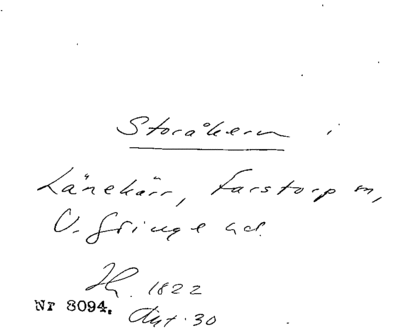 Storåkern i
Länekärr, Farstorp m,
V. Göinge hd.
Jh. 1822
Nr 8094. Akt. 30